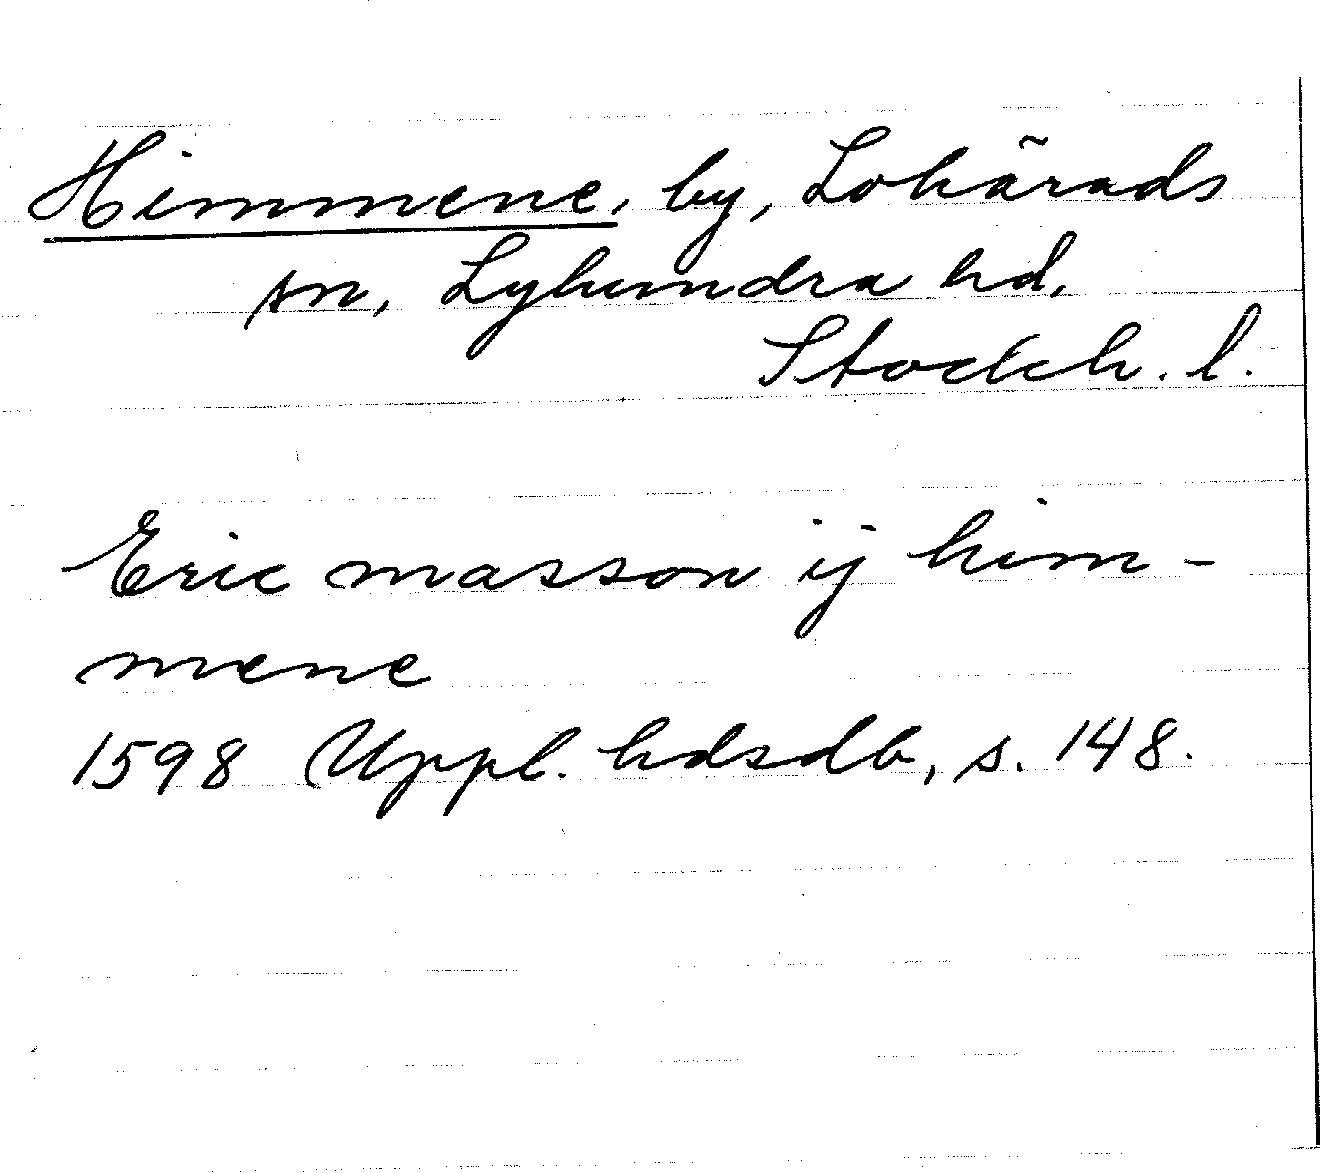 Himmene, by, Lohärads
sn, Lyhundra hd,
Stockh. l.
Eric masson ij him-
mene
1598 Uppl. hdsdb, s. 148.